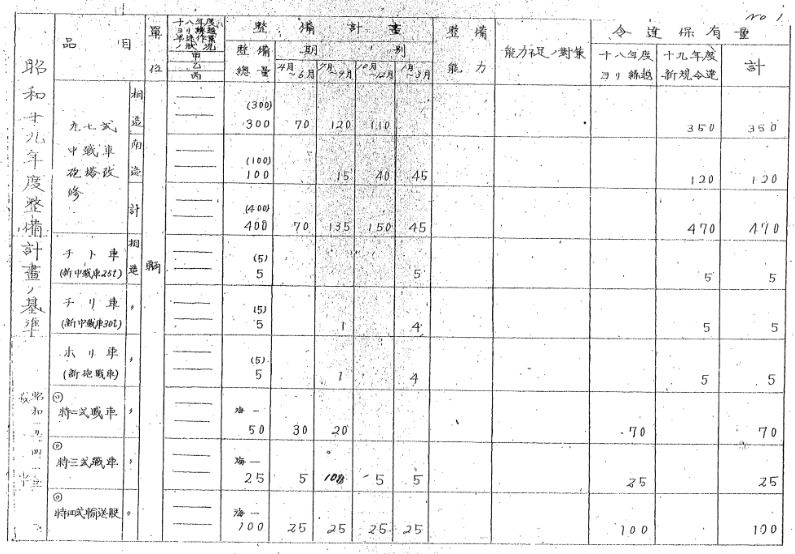 No 1
昭和十九年度整備計畫ノ基準
品目
單位
十八年度ヨリ繰越
甲
乙
丙
整備計畫
整備總量
期別
4月~6月
7月~9月
10月~12月
1月~3月
整備能力
能力不足ノ對策
令達保有量
十八年度ヨリ繰越
十九年度新規令達
計
九七式中戦車砲塔改修
相造
(300)
300 70 120 110 350 350
南造
(100)
100 15 40 45 120 120
計
(400)
400 70 135 150 45 470 470
輌
チト車
(新中戦車25t)
相造
(5)
5 5 5 5
チリ車
(新中戦車30t)
〃
(5)
5 1 4 5 5
ホリ車
(新砲戦車)
〃
(5)
5 1 4 5 5
特二式戦車
〃
海一
50 30 20 70 70
特三式戦車
〃
海一
25 5 5 5 25 25
特四式輸送艇
〃
海一
100 25 25 25 25 100 100